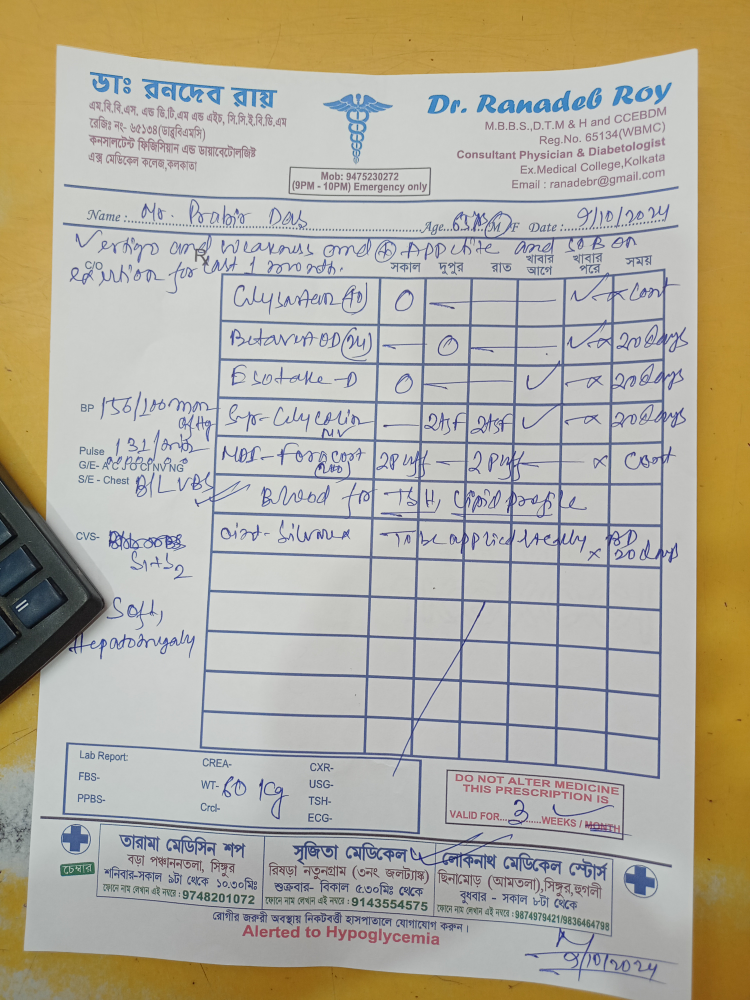 ডাঃ রনদেব রায়
এম.বি.বি.এস. এন্ড ডি.টি.এম এন্ড এইচ, সি.সি.ই.বি.ডি.এম
রেজিঃ নং- ৬৫১৩৪(ডাব্লুবিএমসি)
কনসালটেন্ট ফিজিসিয়ান এন্ড ডায়াবেটোলজিষ্ট
এক্স মেডিকেল কলেজ,কলকাতা
Mob: 9475230272
(9PM - 10PM) Emergency only
Dr. Ranadeb Roy
M.B.B.S.,D.T.M & H and CCEBDM
Reg.No. 65134(WBMC)
Consultant Physician & Diabetologist
Ex.Medical College,Kolkata
Email : ranadebr@gmail.com
Name: Mr. Prabir Das Age 65 M/F Date: 9/10/2024
Vertigo and weakness and Appetite and SOB on
C/O exertion for last 1 month.
Rx সকাল দুপুর রাত খাবার আগে খাবার পরে সময়
(40) O — — ✓ -x Cont
OD (24) — O — — ✓ -x 20 days
Esotake-D O — — ✓ -x 20 days
BP 156/100 mm of Hg
Syp- — 2tsf 2tsf ✓ -x 20 days
Pulse 131/min
MDI- Foracort 2 puff — 2 puff — x Cont
G/E- A C J O Cl NV NG
S/E - Chest B/L VBS
Blood for TSH, Lipid profile
CVS- S1+S2
Oint- To be applied locally x BD 20 days
Soft,
Hepatomegaly
Lab Report:
FBS-
PPBS-
CREA-
WT- 60 Kg
Crcl-
CXR-
USG-
TSH-
ECG-
DO NOT ALTER MEDICINE
THIS PRESCRIPTION IS
VALID FOR...3...WEEKS / MONTH
চেম্বার
তারামা মেডিসিন শপ
বড়া পঞ্চাননতলা, সিঙ্গুর
শনিবার-সকাল ৯টা থেকে ১০.৩০মিঃ
ফোনে নাম লেখান এই নম্বরে : 9748201072
সৃজিতা মেডিকেল
রিষড়া নতুনগ্রাম (৩নং জলট্যাঙ্ক)
শুক্রবার- বিকাল ৫.৩০মিঃ থেকে
ফোনে নাম লেখান এই নম্বরে : 9143554575
লোকনাথ মেডিকেল স্টোর্স
ছিনামোড় (আমতলা),সিঙ্গুর,হুগলী
বুধবার - সকাল ৮টা থেকে
ফোনে নাম লেখান এই নম্বরে :9874979421/9836464798
রোগীর জরুরী অবস্থায় নিকটবর্তী হাসপাতালে যোগাযোগ করুন।
Alerted to Hypoglycemia
9/10/2024